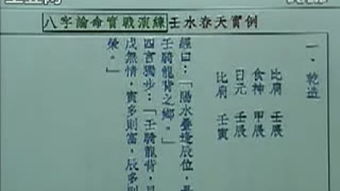 八字論命實戰演練壬水春天實例
一、乾造
比肩 壬辰
食神 甲辰
日元 壬辰
比肩 壬寅
經曰：「陽水疊逢辰位，
壬騎龍背之鄉。」
四言獨步：「壬騎龍背，
戊無情，寅多則富，辰多
榮。」